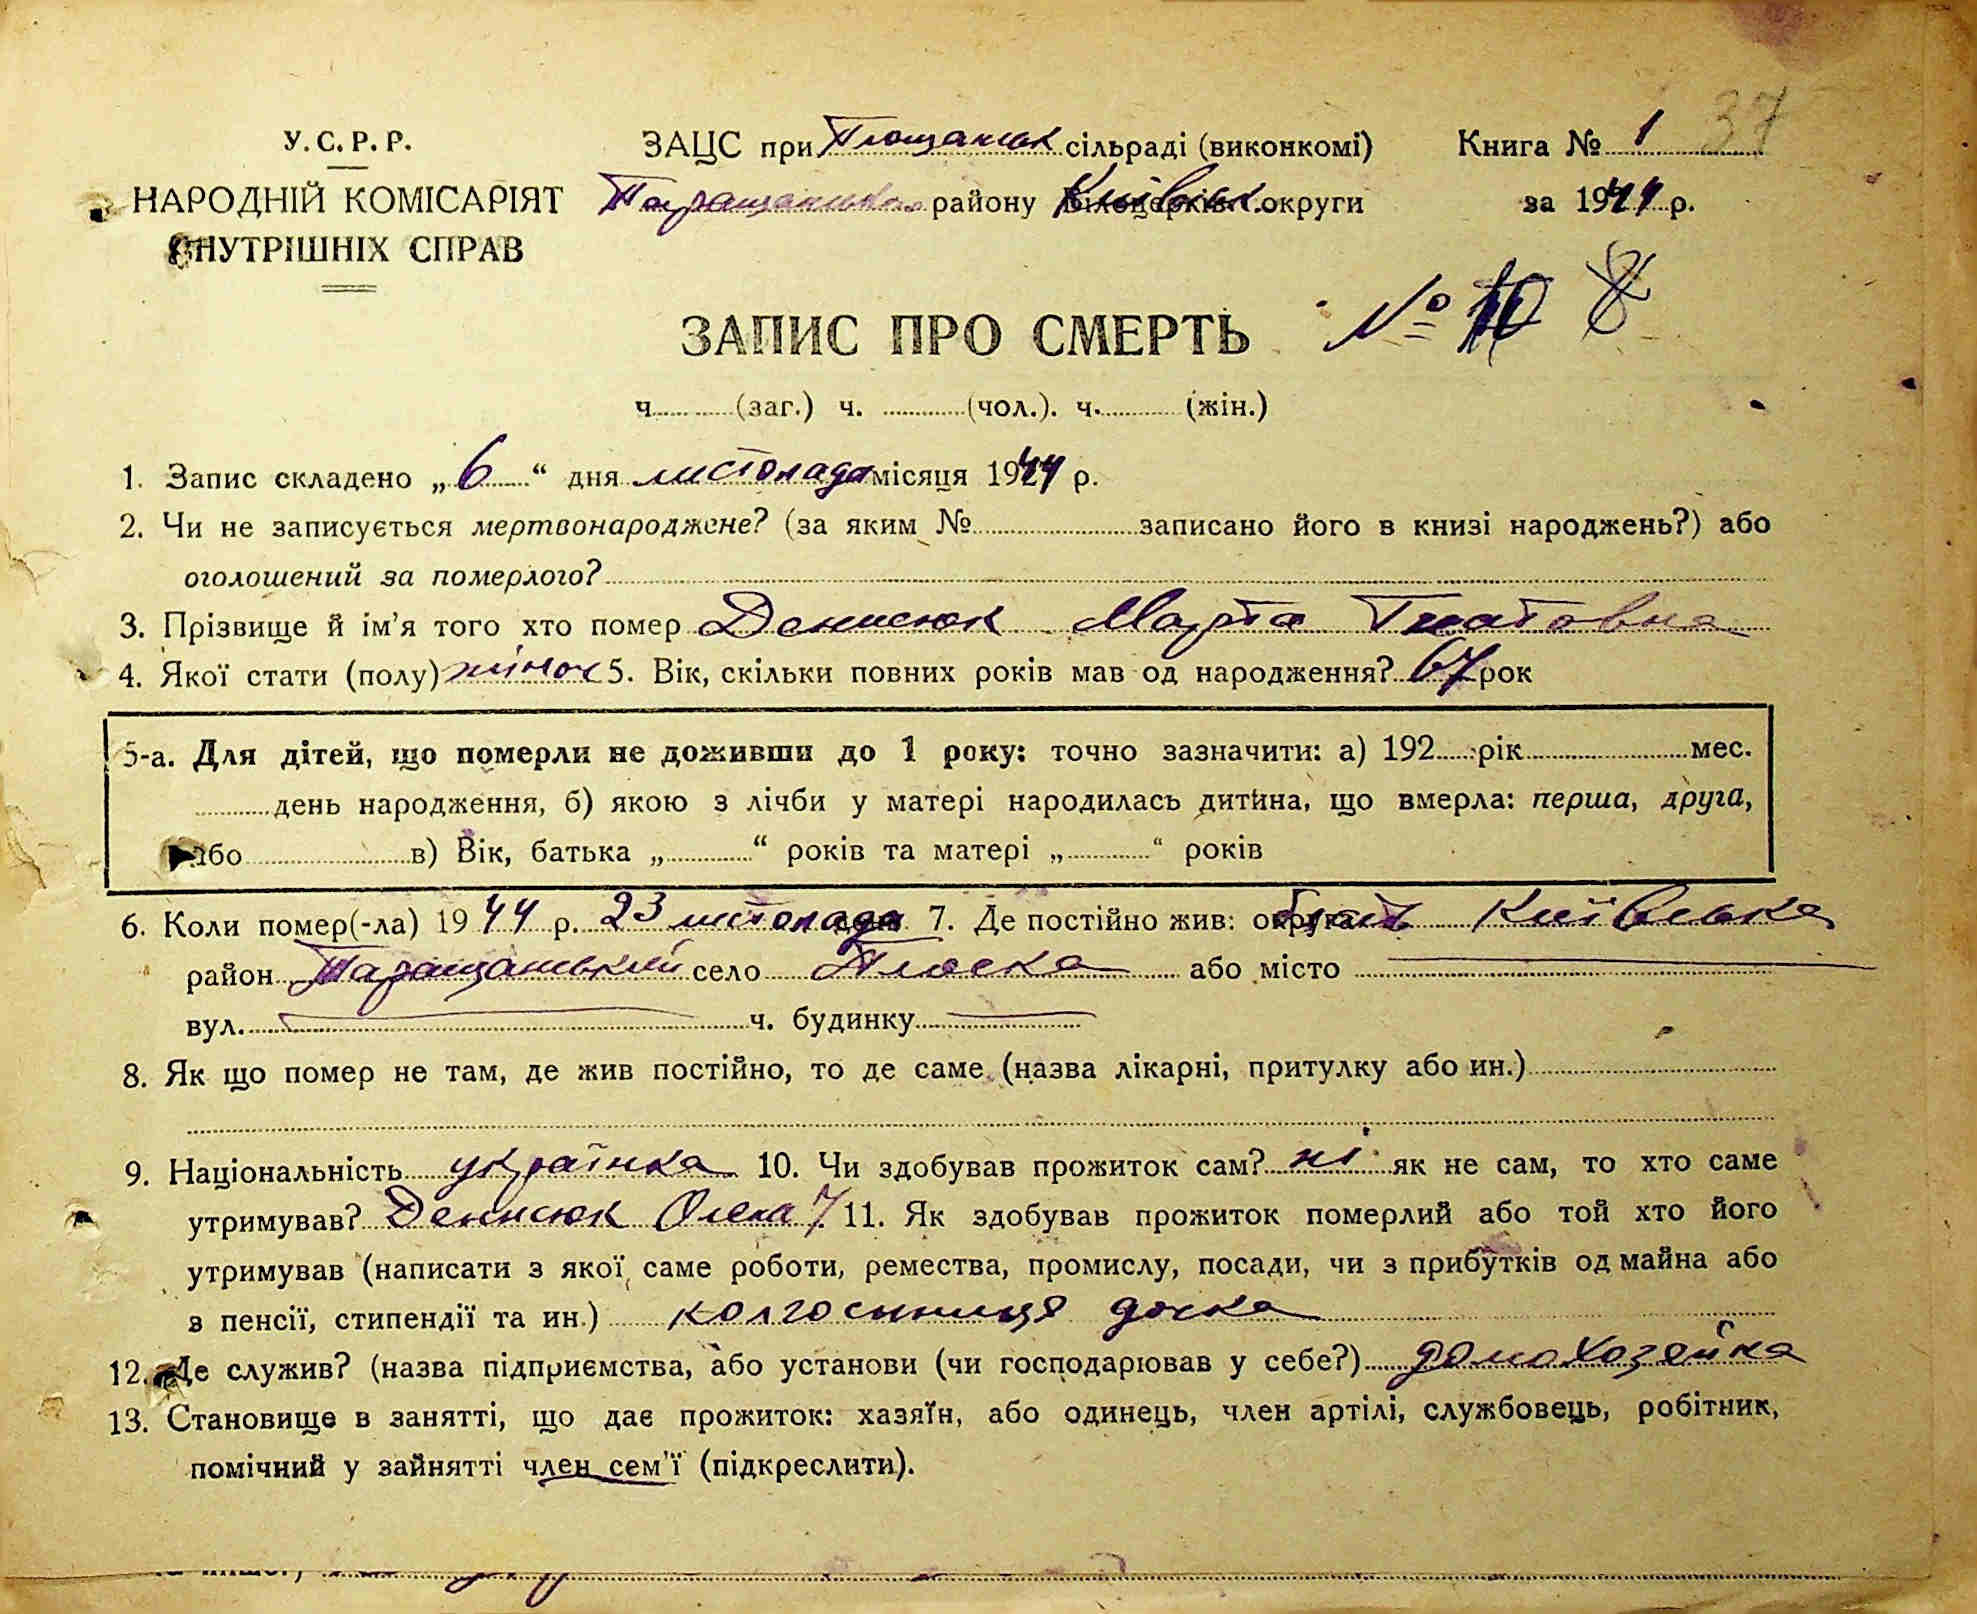 У.С.Р.Р.
НАРОДНІЙ КОМІСАРІЯТ
ВНУТРІШНІХ СПРАВ
ЗАЦС при Площанськ сільраді (виконкомі)
Таращанськ. району Київськ. округи
Книга № 1 37
за 1944 р.
ЗАПИС ПРО СМЕРТЬ № 10 8
ч. (заг.) ч. (чол.). ч. (жін.)
1. Запис складено „6“ дня листопада місяця 1944 р.
2. Чи не записується мертвонароджене? (за яким № записано його в книзі народжень?) або
оголошений за померлого?
3. Прізвище й ім'я того хто помер Денисюк Марта Гнатовна
4. Якої стати (полу) жіноч 5. Вік, скільки повних років мав од народження? 67 рок
5-а. Для дітей, що померли не доживши до 1 року: точно зазначити: а) 192 рік мес.
день народження, б) якою з лічби у матері народилась дитина, що вмерла: перша, друга,
або в) Вік, батька „ “ років та матері „ “ років
6. Коли помер(-ла) 1944 р. 23 листопада 7. Де постійно жив: округа Київська
район Таращанський село Плоска або місто
вул. ч. будинку
8. Як що помер не там, де жив постійно, то де саме (назва лікарні, притулку або ин.)
9. Національність українка 10. Чи здобував прожиток сам? ні як не сам, то хто саме
утримував? Денисюк Олена 11. Як здобував прожиток померлий або той хто його
утримував (написати з якої саме роботи, ремества, промислу, посади, чи з прибутків од майна або
з пенсії, стипендії та ин.) колгоспниця дочка
12. Де служив? (назва підприємства, або установи (чи господарював у себе?) домохозяйка
13. Становище в занятті, що дає прожиток: хазяїн, або одинець, член артілі, службовець, робітник,
помічний у зайнятті член сем'ї (підкреслити).